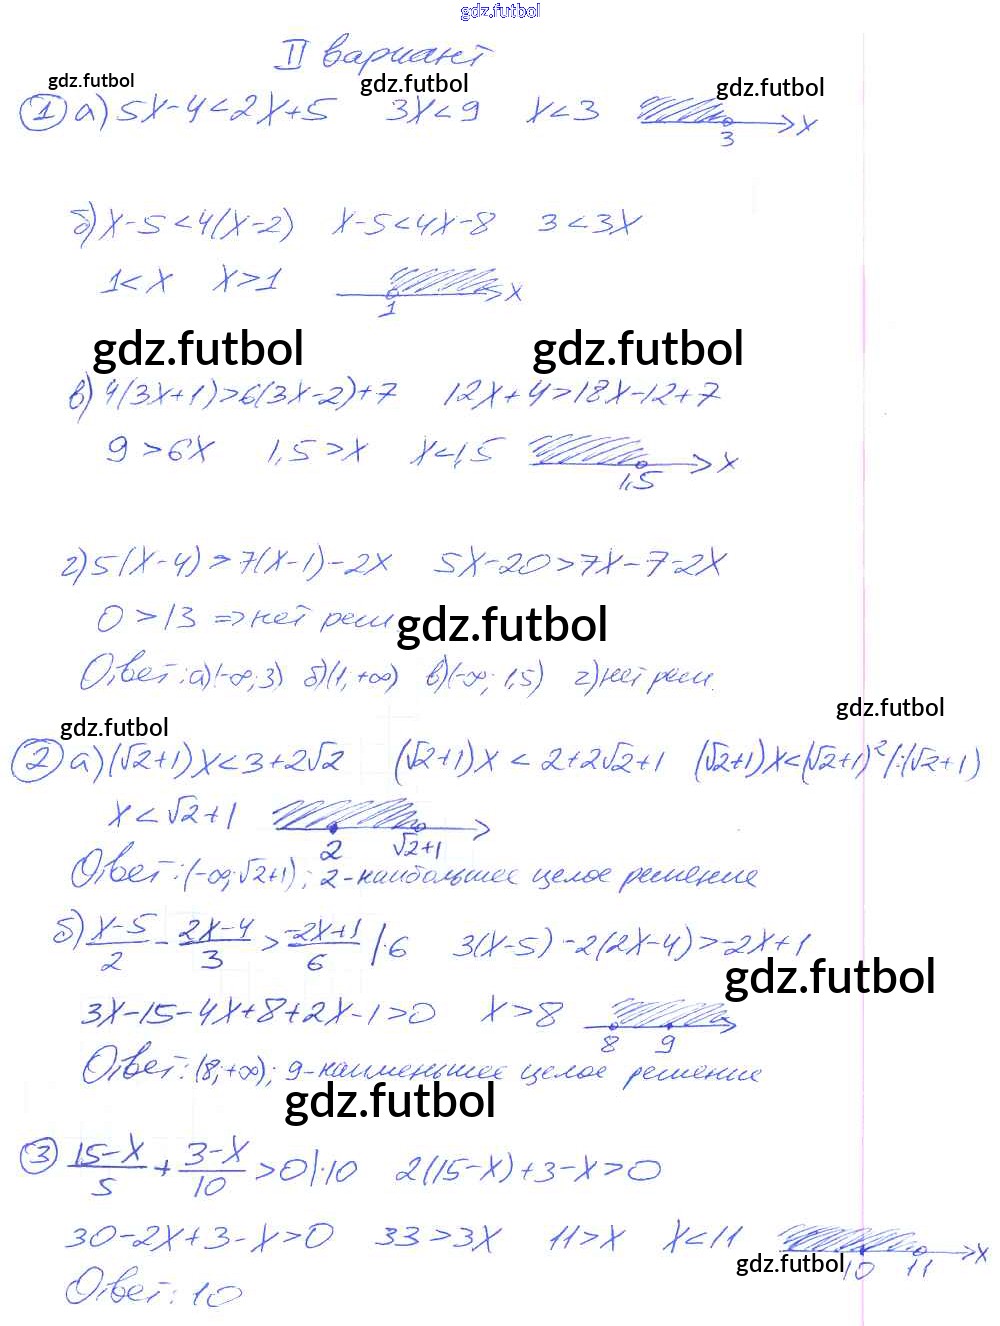 gdz.futbol
II вариант
gdz.futbol gdz.futbol gdz.futbol
1 а) 5x-4<2x+5 3x<9 x<3 3 x
б) x-5<4(x-2) x-5<4x-8 3<3x
1<x x>1 1 x
gdz.futbol gdz.futbol
в) 4(3x+1)>6(3x-2)+7 12x+4>18x-12+7
9>6x 1,5>x x<1,5 1,5 x
г) 5(x-4)>7(x-1)-2x 5x-20>7x-7-2x
0>13 => нет реш gdz.futbol
Ответ: а)(-∞;3) б)(1;+∞) в)(-∞; 1,5) г) нет реш.
gdz.futbol gdz.futbol
2 а) (√2+1)x<3+2√2 (√2+1)x < 2+2√2+1 (√2+1)x<(√2+1)² /:(√2+1)
x<√2+1 2 √2+1
Ответ: (-∞;√2+1); 2-наибольшее целое решение
б) (x-5)/2 - (2x-4)/3 > (-2x+1)/6 |·6 3(x-5)-2(2x-4)>-2x+1
gdz.futbol
3x-15-4x+8+2x-1>0 x>8 8 9
Ответ: (8;+∞); 9-наименьшее целое решение
gdz.futbol
3 (15-x)/5 + (3-x)/10 >0 |·10 2(15-x)+3-x>0
30-2x+3-x>0 33>3x 11>x x<11 10 11 x
gdz.futbol
Ответ: 10